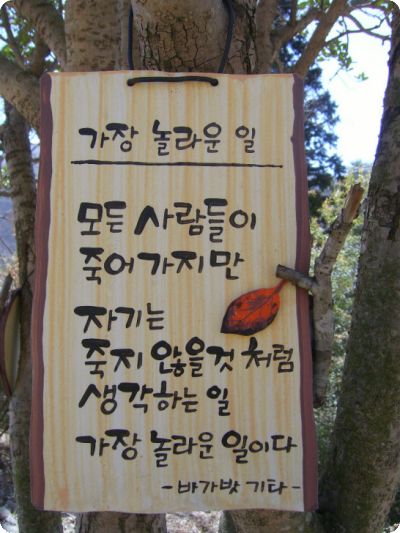 가장 놀라운 일
모든 사람들이
죽어가지만
자기는
죽지 않을것 처럼
생각하는 일
가장 놀라운 일이다
- 바가밧 기타 -